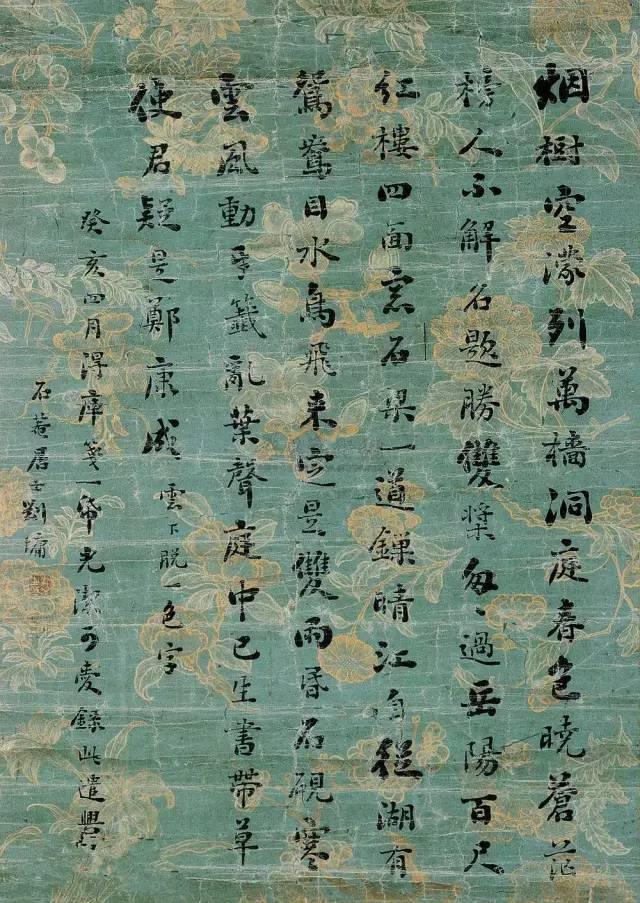 烟樹空濛列萬檣洞庭春色曉蒼茫
榜人不解名題勝雙槳匆〻過岳陽百尺
紅樓四面窓石梁一道鏁晴江自從湖有
鴛鴦目水鳥飛来定是雙雨昏石硯寒
雲風動牙籤亂葉聲庭中已生書帶草
使君疑是鄭康成 雲下脱一色字
癸亥四月得庫箋一帋光潔可愛録此遣興
石菴居士劉墉